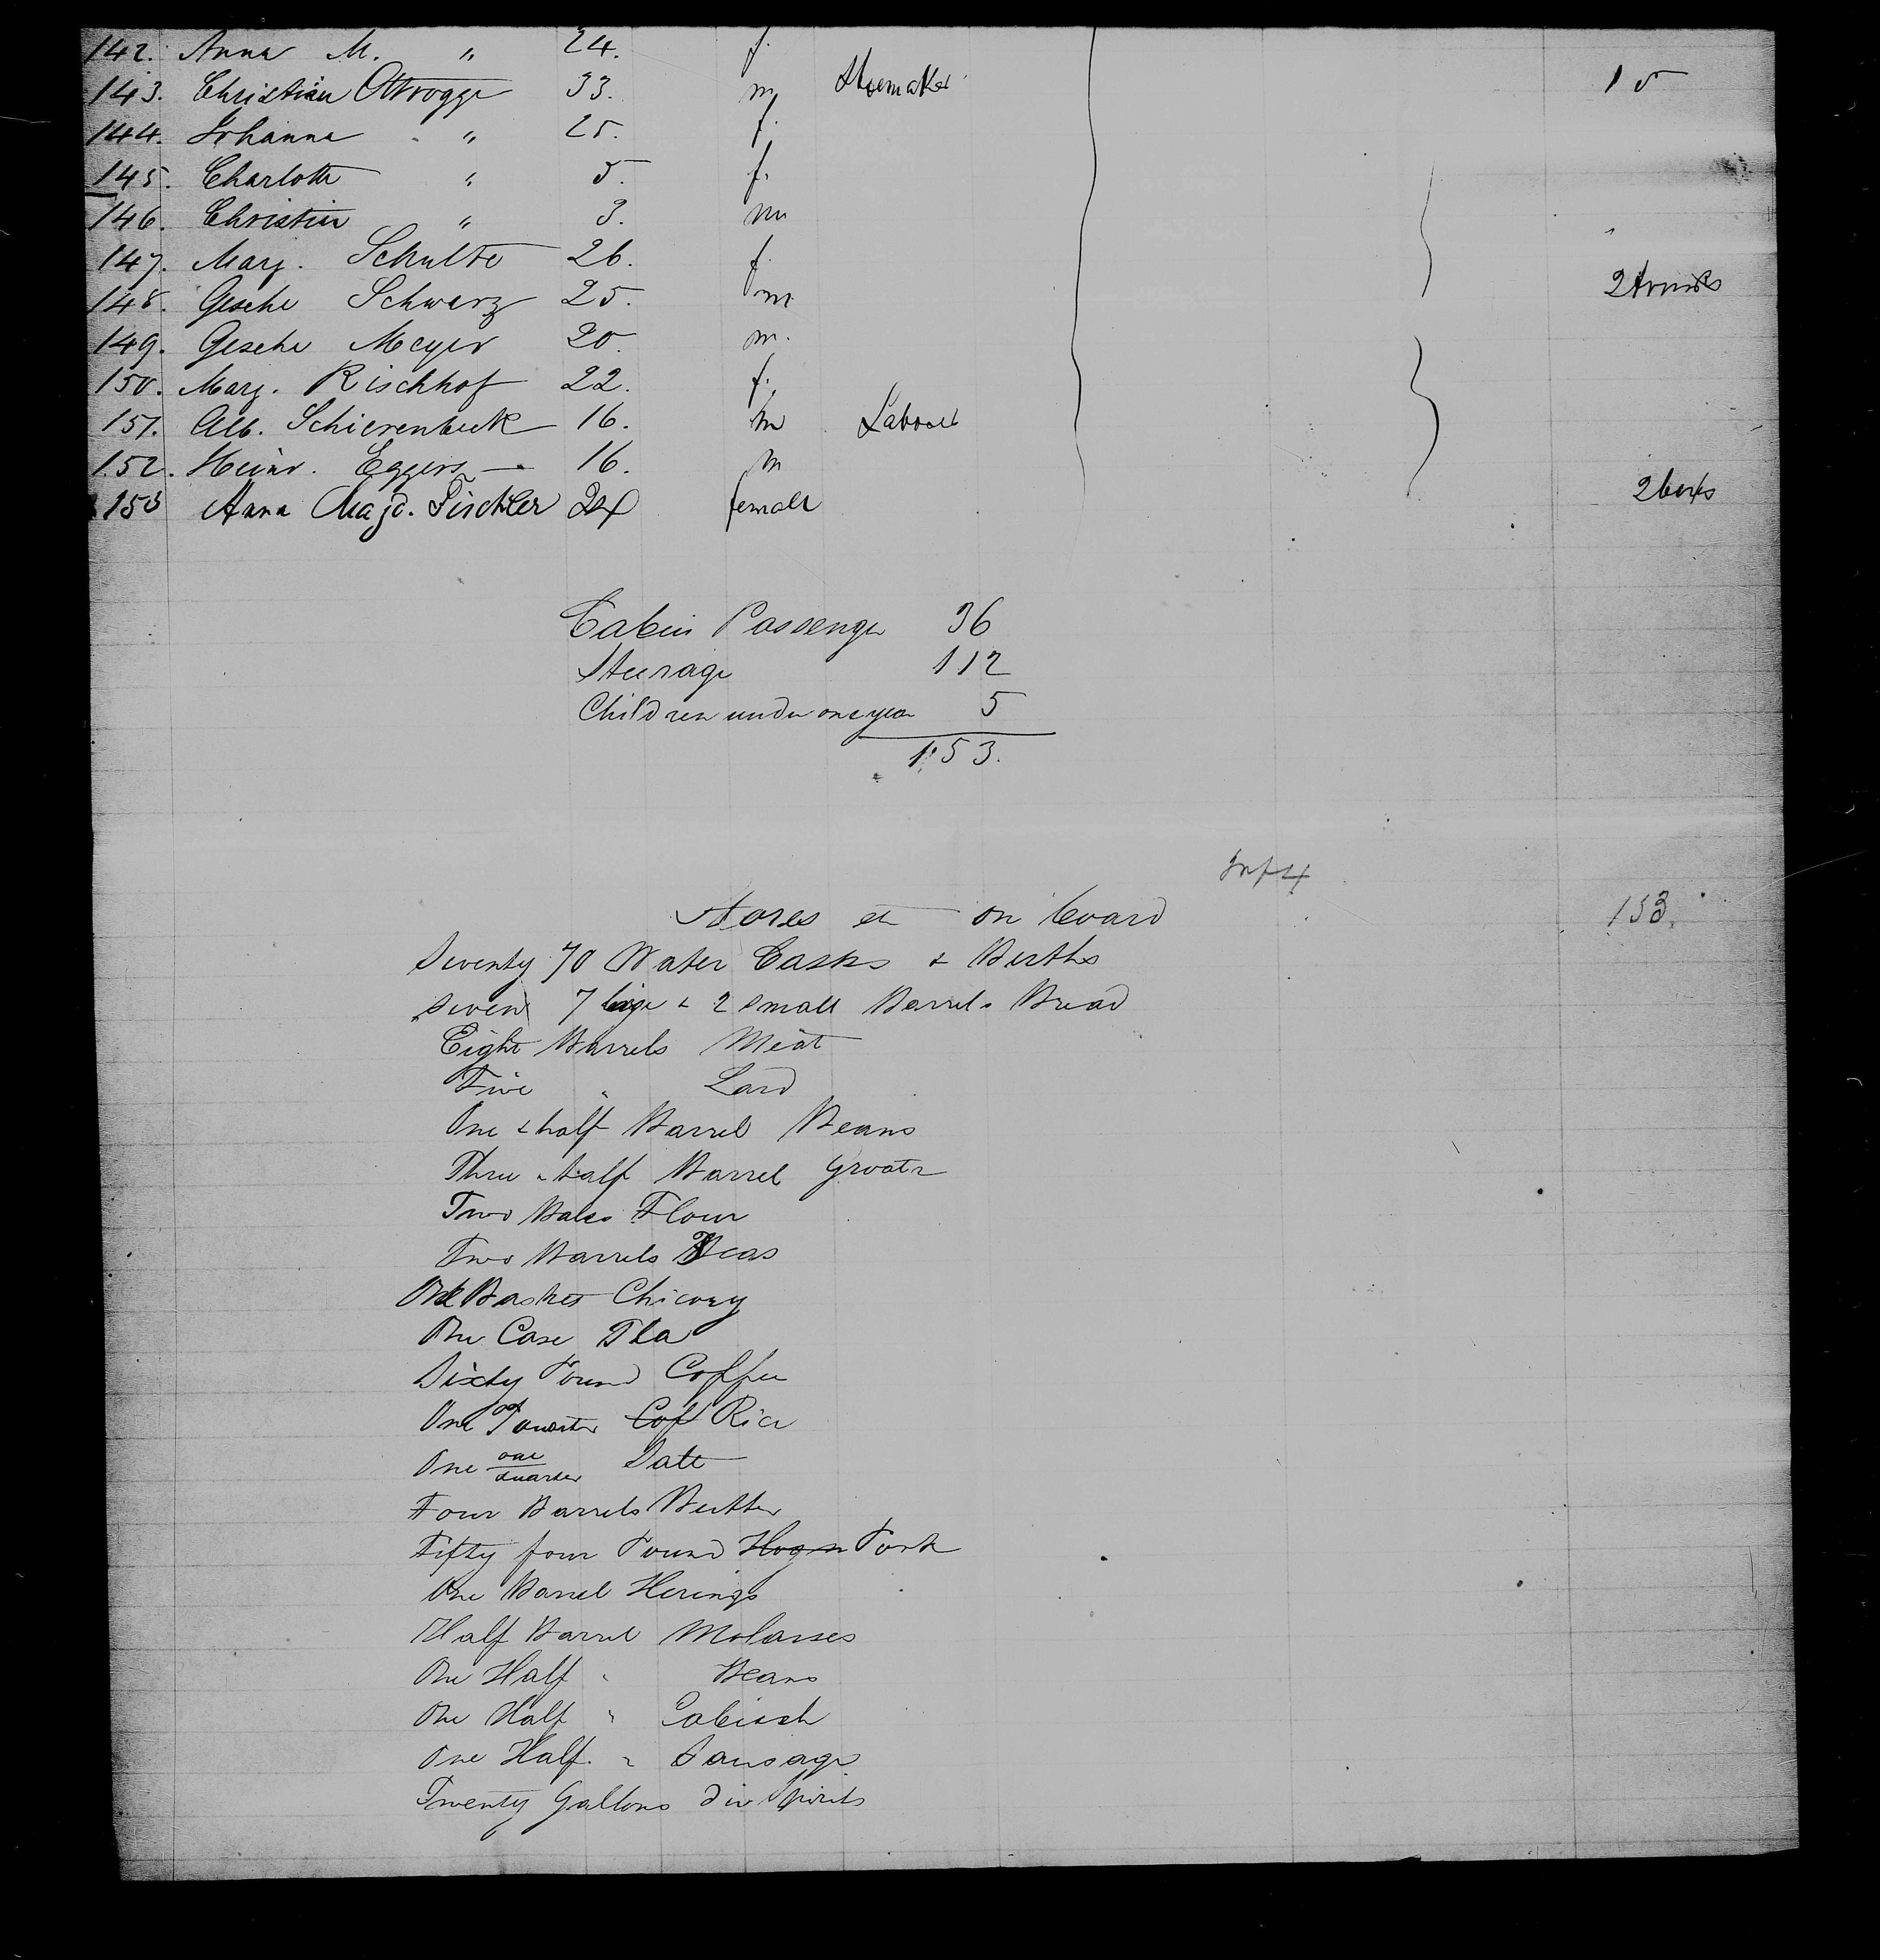 142. Anna M. " 24. f.
143. Christian Ottrogge 33. m Shoemaker 15
144. Johanne " 25. f.
145. Charlotte " 5. f.
146. Christian " 3. m
147. Marg. Schulte 26. f.
148. Gesche Schwarz 25. m 2 trunks
149. Gesche Meyer 20. m.
150. Marg. Rischhof 22. f.
151. Alb. Schierenbeck 16. m Labour
152. Heinr. Eggers 16. m
153 Anna Magd. Tischler 24 female 2 boxs
Cabin Passenger 36
Steerage 112
Children under one year 5
153.
153.
Stores et on board
Seventy 70 Water Casks & Berths
Seven 7 large & 2 small Barrels Bread
Eight Barrels Meat
Five " Lard
One & half Barrel Beans
Three & half Barrel Groats
Two Bales Flour
Two Barrels Peas
One Basket Chicory
One Case Tea
Sixty Pound Coffee
One Cof Rice
One one quarter Salt
Four Barrels Butter
Fifty four Pound Hogn Pork
One Barrel Herings
Half Barrel Molasses
One Half " Beans
One Half "
One Half. " Sausage
Twenty Gallons div Spirits